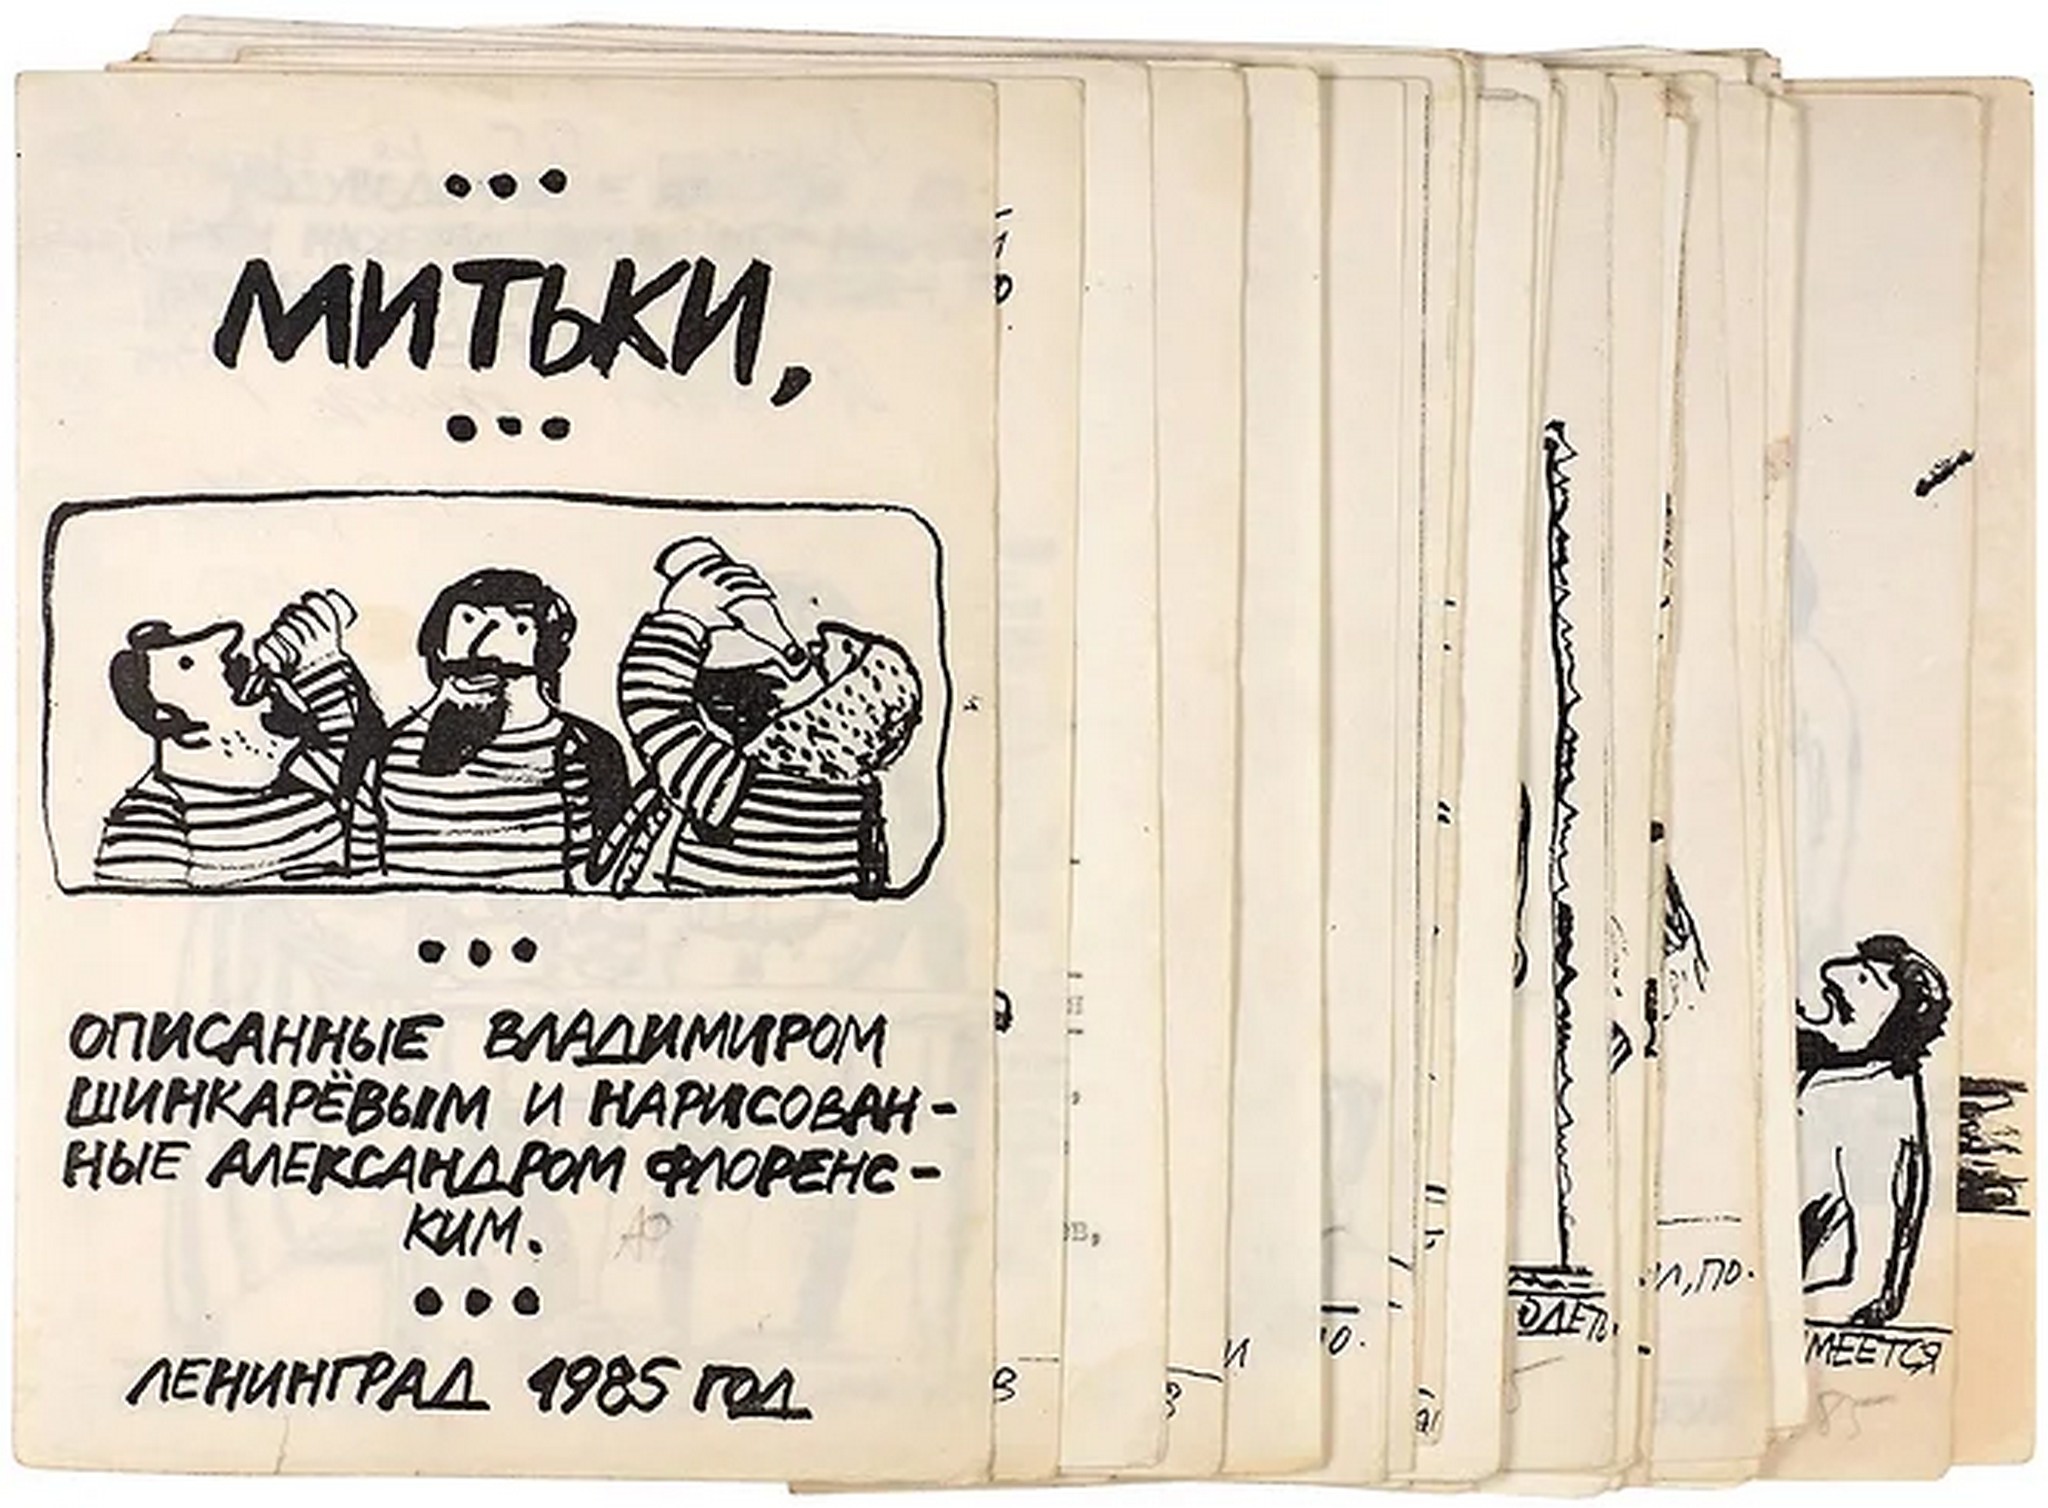 МИТЬКИ,
ОПИСАННЫЕ ВЛАДИМИРОМ
ШИНКАРЁВЫМ И НАРИСОВАН-
НЫЕ АЛЕКСАНДРОМ ФЛОРЕНС-
КИМ.
ЛЕНИНГРАД 1985 ГОД
ОДЕТЬ.
Л, ПО.
МЕЕТСЯ